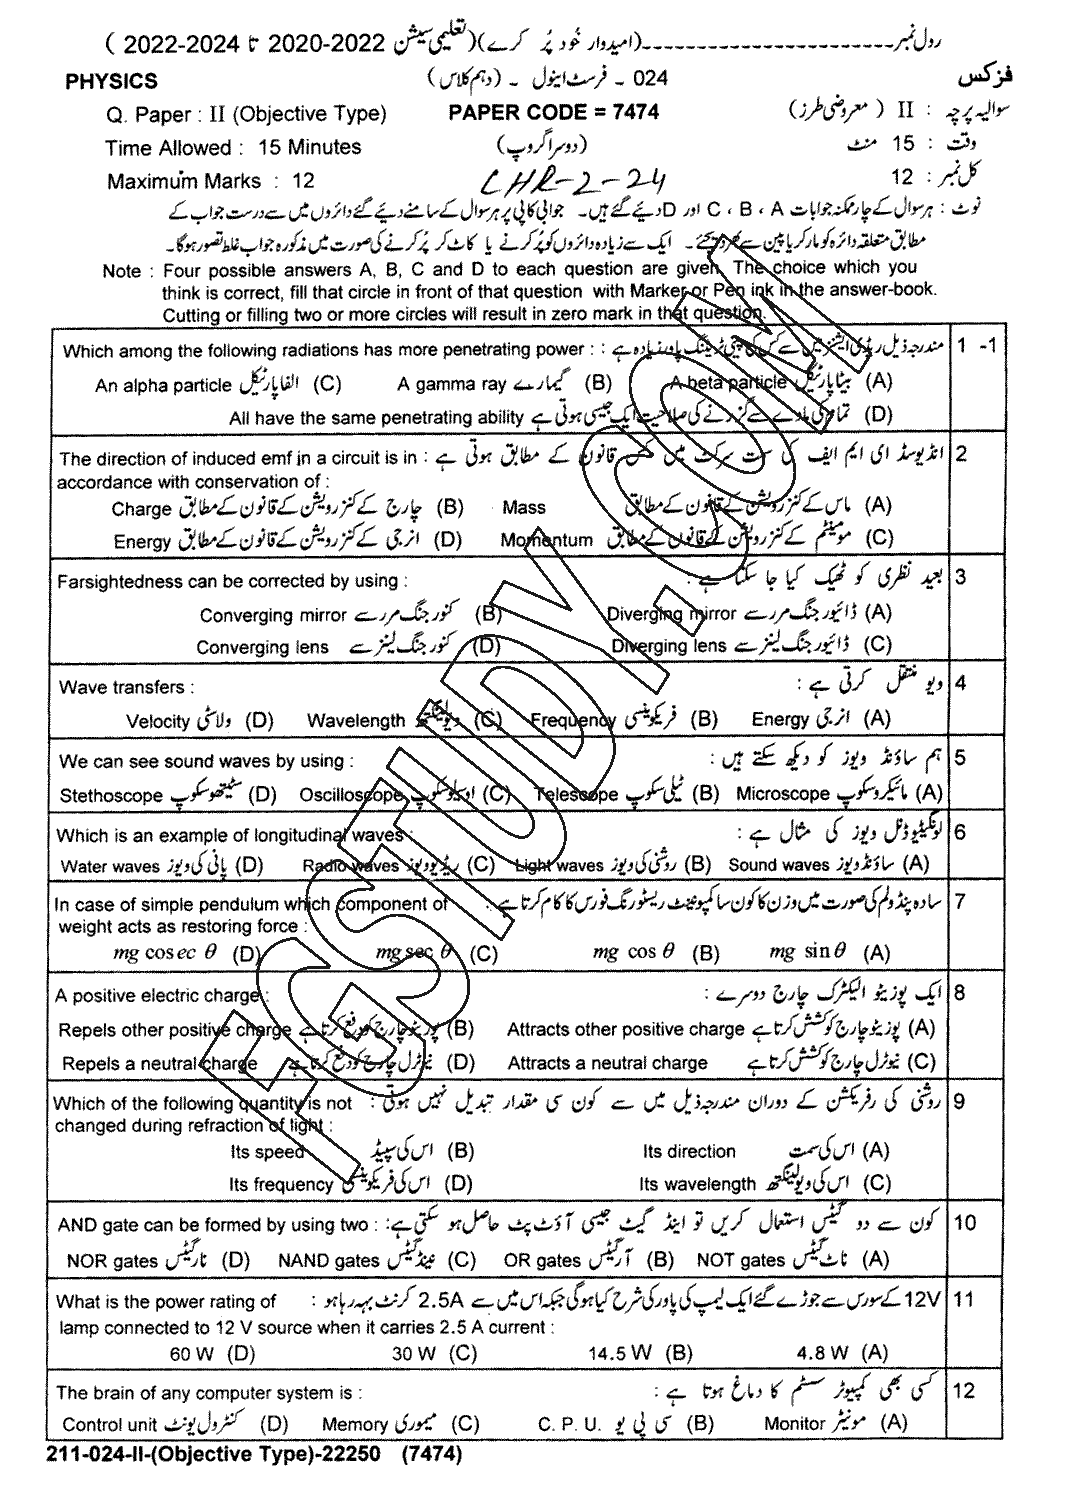 رول نمبر ------------------------(امیدوار خود پُر کرے)(تعلیمی سیشن 2022-2020 تا 2024-2022 )
PHYSICS 024 ۔ فرسٹ اینول ۔ (دہم کلاس) فزکس
Q. Paper : II (Objective Type) PAPER CODE = 7474 سوالیہ پرچہ : II ( معروضی طرز)
Time Allowed : 15 Minutes (دوسرا گروپ) وقت : 15 منٹ
Maximum Marks : 12 CHR-2-24 کل نمبر : 12
نوٹ : ہر سوال کے چار ممکنہ جوابات A ، B ، C اور D دیئے گئے ہیں۔ جوابی کاپی پر ہر سوال کے سامنے دیئے گئے دائروں میں سے درست جواب کے
مطابق متعلقہ دائرہ کو مارکر یا پین سے بھر دیجئے۔ ایک سے زیادہ دائروں کو پُر کرنے یا کاٹ کر پُر کرنے کی صورت میں مذکورہ جواب غلط تصور ہوگا۔
Note : Four possible answers A, B, C and D to each question are given. The choice which you
think is correct, fill that circle in front of that question with Marker or Pen ink in the answer-book.
Cutting or filling two or more circles will result in zero mark in that question.
Which among the following radiations has more penetrating power : : مندرجہ ذیل ریڈی ایشنز میں سے کس کی پینی ٹریٹنگ پاور زیادہ ہے 1 -1
An alpha particle الفا پارٹیکل (C) A gamma ray گیما رے (B) A beta particle بیٹا پارٹیکل (A)
All have the same penetrating ability تمام کی مادے سے گزرنے کی صلاحیت ایک جیسی ہوتی ہے (D)
The direction of induced emf in a circuit is in : انڈیوسڈ ای ایم ایف کی سمت سرکٹ میں کس قانون کے مطابق ہوتی ہے 2
accordance with conservation of :
Charge چارج کے کنزرویشن کے قانون کے مطابق (B) Mass ماس کے کنزرویشن کے قانون کے مطابق (A)
Energy انرجی کے کنزرویشن کے قانون کے مطابق (D) Momentum مومینٹم کے کنزرویشن کے قانون کے مطابق (C)
Farsightedness can be corrected by using : بعید نظری کو ٹھیک کیا جا سکتا ہے : 3
Converging mirror کنورجنگ مرر سے (B) Diverging mirror ڈائیورجنگ مرر سے (A)
Converging lens کنورجنگ لینز سے (D) Diverging lens ڈائیورجنگ لینز سے (C)
Wave transfers : ویو منتقل کرتی ہے : 4
Velocity ولاسٹی (D) Wavelength ویولینگتھ (C) Frequency فریکوینسی (B) Energy انرجی (A)
We can see sound waves by using : ہم ساؤنڈ ویوز کو دیکھ سکتے ہیں : 5
Stethoscope سٹیتھوسکوپ (D) Oscilloscope اوسیلوسکوپ (C) Telescope ٹیلی سکوپ (B) Microscope مائیکروسکوپ (A)
Which is an example of longitudinal waves : لونگیٹیوڈنل ویوز کی مثال ہے : 6
Water waves پانی کی ویوز (D) Radio waves ریڈیو ویوز (C) Light waves روشنی کی ویوز (B) Sound waves ساؤنڈ ویوز (A)
In case of simple pendulum which component of سادہ پنڈولم کی صورت میں وزن کا کون سا کمپونینٹ ریسٹورنگ فورس کا کام کرتا ہے : 7
weight acts as restoring force :
mg cosec θ (D) mg sec θ (C) mg cos θ (B) mg sin θ (A)
A positive electric charge : ایک پوزیٹو الیکٹرک چارج دوسرے : 8
Repels other positive charge پوزیٹو چارج کو دفع کرتا ہے (B) Attracts other positive charge پوزیٹو چارج کو کشش کرتا ہے (A)
Repels a neutral charge نیوٹرل چارج کو دفع کرتا ہے (D) Attracts a neutral charge نیوٹرل چارج کو کشش کرتا ہے (C)
Which of the following quantity is not روشنی کی رفریکشن کے دوران مندرجہ ذیل میں سے کون سی مقدار تبدیل نہیں ہوتی : 9
changed during refraction of light :
Its speed اس کی سپیڈ (B) Its direction اس کی سمت (A)
Its frequency اس کی فریکوینسی (D) Its wavelength اس کی ویولینگتھ (C)
AND gate can be formed by using two : کون سے دو گیٹس استعمال کریں تو اینڈ گیٹ جیسی آؤٹ پٹ حاصل ہو سکتی ہے: 10
NOR gates نار گیٹس (D) NAND gates نینڈ گیٹس (C) OR gates آر گیٹس (B) NOT gates ناٹ گیٹس (A)
What is the power rating of 12V کے سورس سے جوڑے گئے ایک لیمپ کی پاور کی شرح کیا ہوگی جبکہ اس میں سے 2.5A کرنٹ بہہ رہا ہو : 11
lamp connected to 12 V source when it carries 2.5 A current :
60 W (D) 30 W (C) 14.5 W (B) 4.8 W (A)
The brain of any computer system is : کسی بھی کمپیوٹر سسٹم کا دماغ ہوتا ہے : 12
Control unit کنٹرول یونٹ (D) Memory میموری (C) C. P. U. سی پی یو (B) Monitor مونیٹر (A)
211-024-II-(Objective Type)-22250 (7474)
FGSTUDY.COM